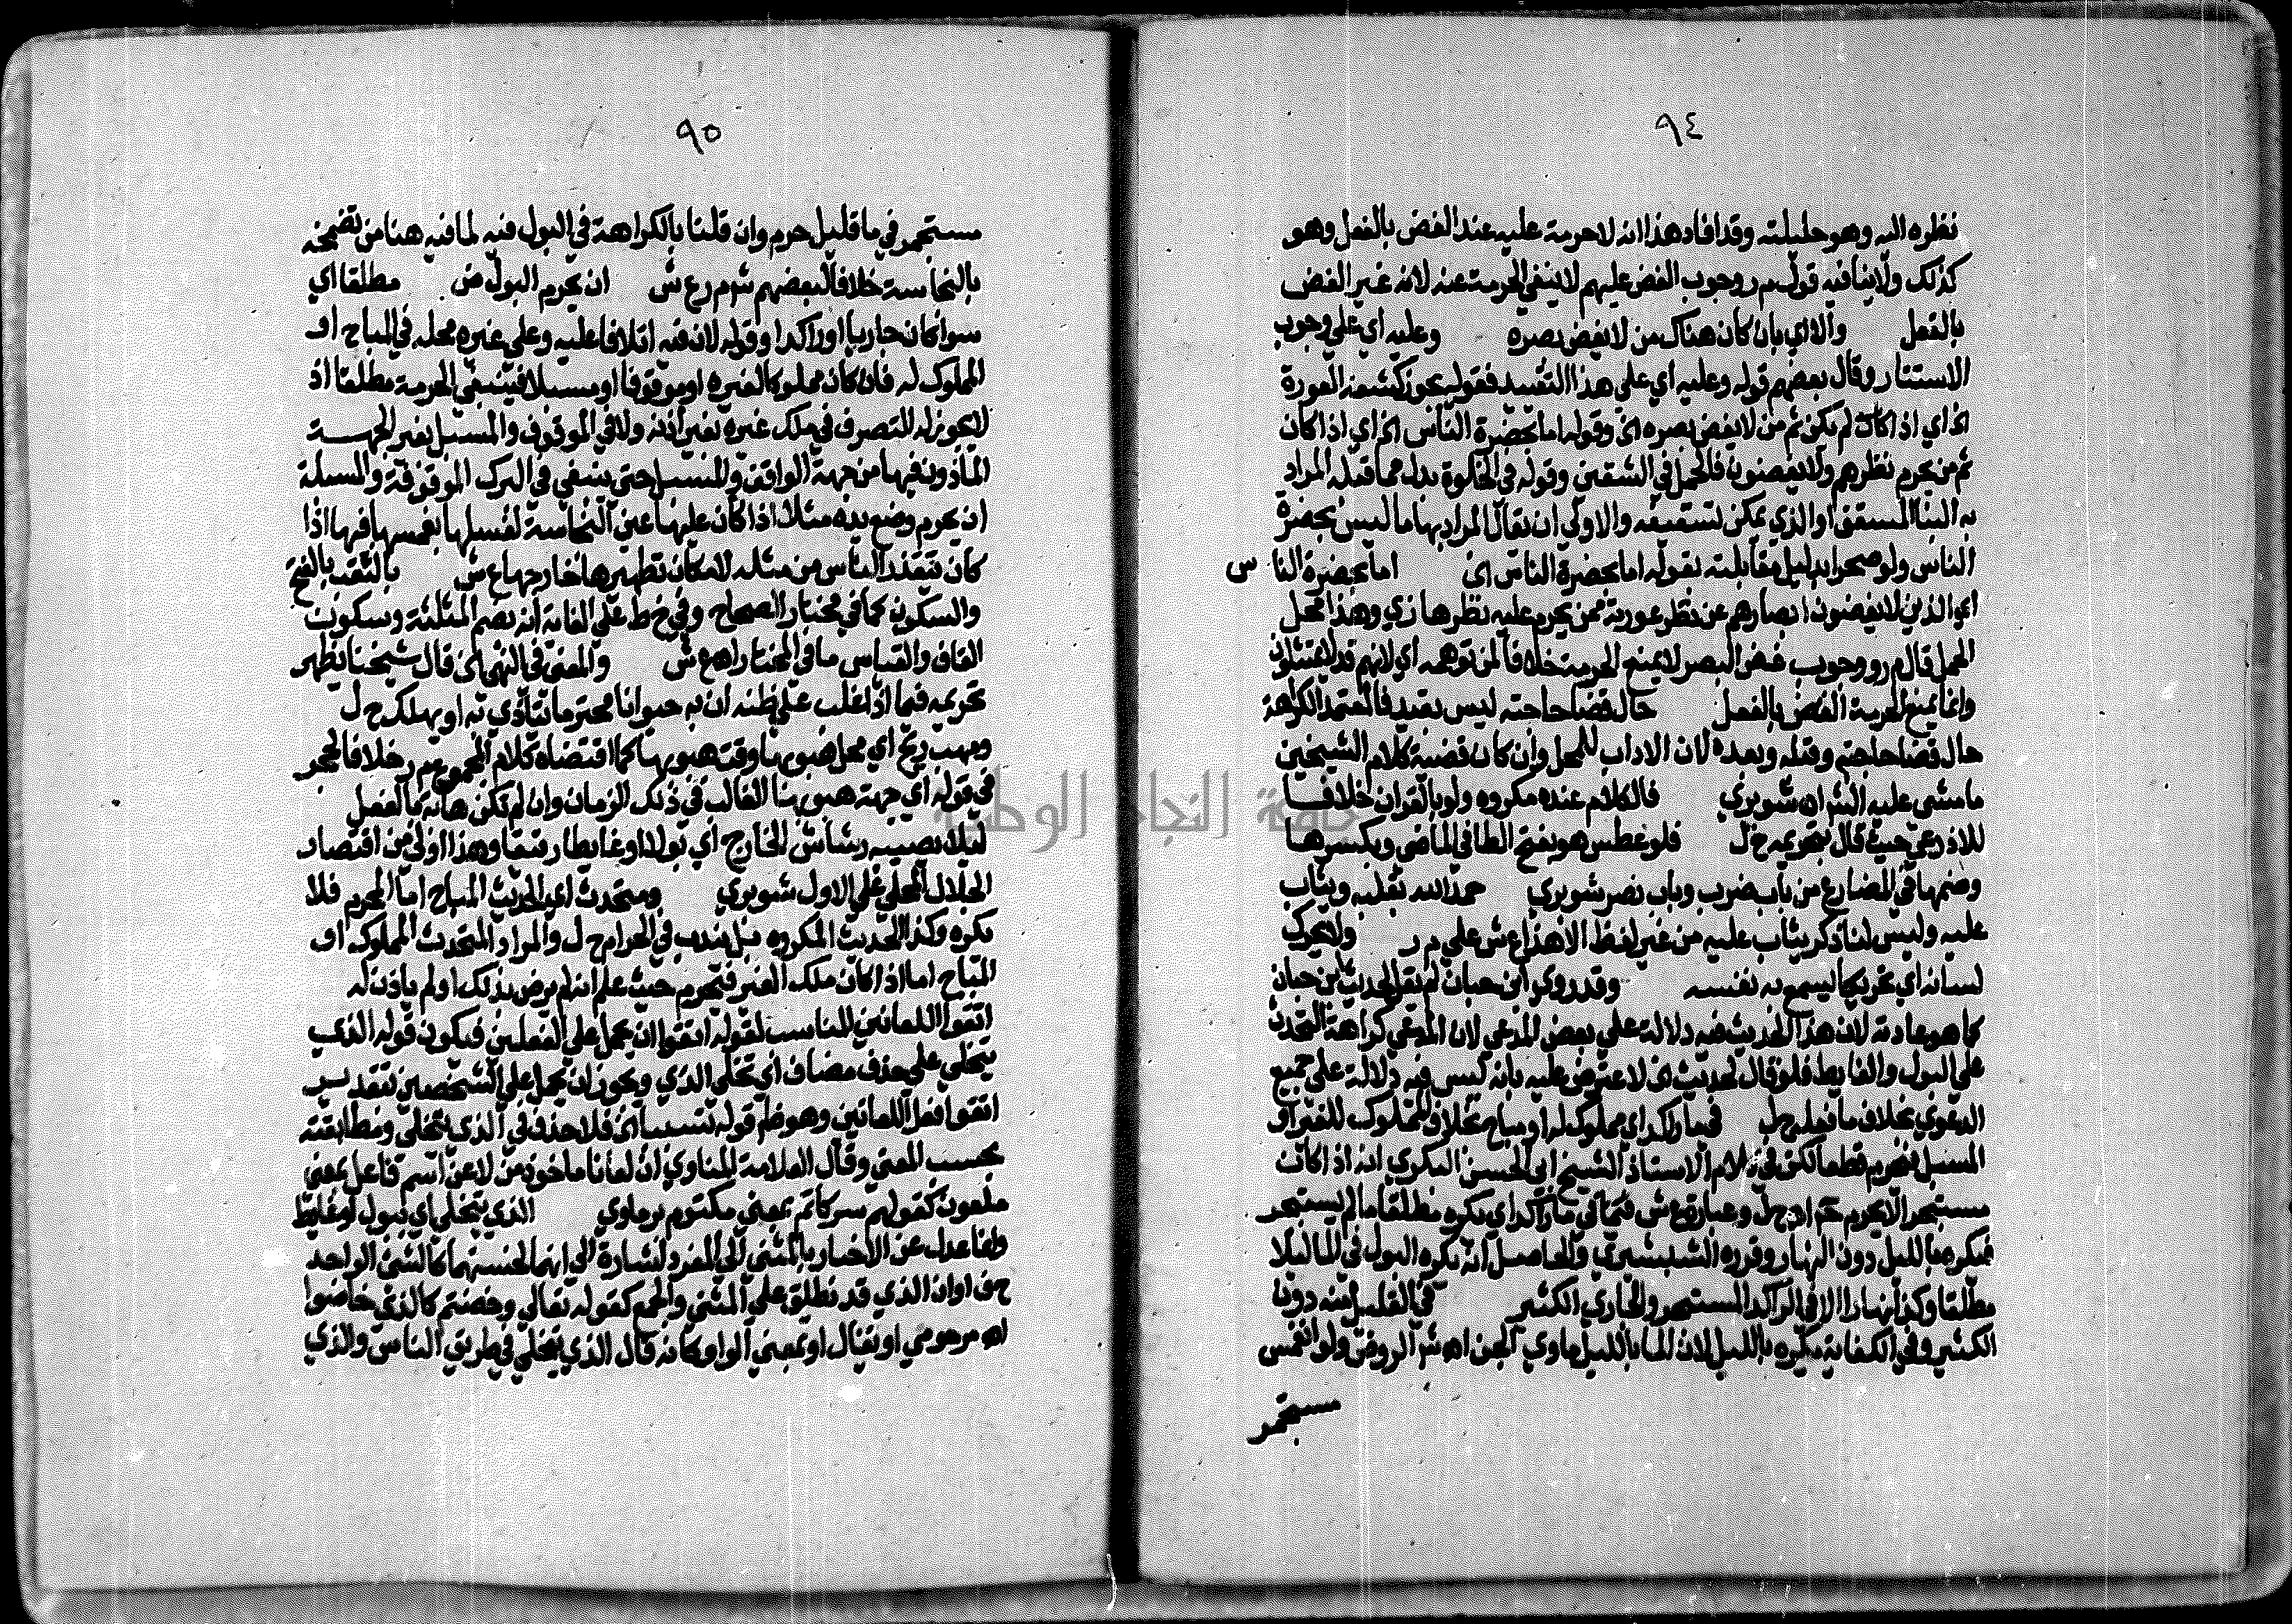 ٩٤
نظره اليه وهو حليلته وقد افاد هذا انه لا حرمة عليه عند الغض بالفعل وهو
كذلك ولا ينافيه قول م ر وجوب الغض عليهم لا ينفي الحرمة عنه لانه غير الغض
بالفعل والا اي بان كان هناك من لا يغض بصره وعليه اي على وجوب
الاستتار وقال بعضهم قوله وعليه اي على هذا التقييد فقوله يجوز كشف العورة
الخ اي اذا كان لم يكن ثم من لا يغض بصره الخ وقوله اما بحضرة الناس الخ اي اذا كان
ثم من يحرم نظرهم ولا يغضون فالحمل في الشقين وقوله في الخلوة بدل مما قبله المراد
به البنا المسقف او الذي يمكن تسقيفه والاولى ان يقال المراد بها ما ليس بحضرة
الناس ولو صحرا بدليل مقابلته بقوله اما بحضرة الناس اي اما بحضرة الناس
اي الذين لا يغضون ابصارهم عن نظر عورته ممن يحرم عليه نظرها زي وهذا محل
الحمل قال م ر ووجوب غض البصر لا يمنع الحرمة خلافا لمن توهمه اي لانهم قد لا يمتثلون
وانما يمنع الحرمة الغض بالفعل حال قضا حاجته ليس بقيد فالمعتمد الكراهة
حال قضا حاجته وقبله وبعده لان الاداب للمحل وان كان قضية كلام الشيخين
ما مشى عليه الش ان شوبري فالكلام عنده مكروه ولو بالقران خلافا
للاذرعي حيث قال بتحريمه ح ل فلو عطس هو بفتح الطا في الماضي وبكسرها
وضمها في المضارع من باب ضرب وباب نصر شوبري حمد الله بقلبه ويثاب
عليه وليس لنا ذكر يثاب عليه من غير لفظ الا هذا ع ش على م ر ولا يحرك
لسانه اي تحريكا يسمع به نفسه وقد روى ابن حبان لم يقل لحديث ابن حبان
كما هو عادته لان هذا الحديث فيه دلالة على بعض المدعى لان المدعى كراهة التحدث
على البول والغايط فلو قال لحديث الخ لاعترض عليه بانه ليس فيه دلالة على جميع
الدعوى بخلاف ما فعله ح ل في ما راكد اي مملوك له او مباح بخلاف المملوك للغير او
المسبل فيحرم قطعا لكن في كلام الاستاذ الشيخ ابي الحسن البكري انه اذا كان
مستبحرا لا يحرم ح ل وعبارة ع ش في ما راكد اي يكره مطلقا ما لم يستبحر
فيكره بالليل دون النهار وقرره الشبشيري والحاصل انه يكره البول في الما ليلا
مطلقا وكذا نهارا الا في الراكد المستبحر والجاري الكثير في القليل منه دون
الكثير وفي الكفاية يكره بالليل لان الما بالليل ماوى الجن اه ش الروض ولو انغمس
مستبحر
٩٥
مستجمر في ما قليل حرم وان قلنا بالكراهة في البول فيه لما فيه هنا من تضمخه
بالنجاسة خلافا لبعضهم ش م ر ع ش ان يحرم البول مطلقا اي
سوا كان جاريا او راكدا وقوله لان فيه اتلافا عليه وعلى غيره محله في المباح او
المملوك له فان كان مملوكا لغيره او موقوفا او مسبلا فينبغي الحرمة مطلقا اذ
لا يجوز له التصرف في ملك غيره بغير اذنه ولا في الموقوف والمسبل بغير الجهة
الماذون فيها من جهة الواقف والمسبل حتى ينبغي في البرك الموقوفة والمسبلة
ان يحرم وضع يده مثلا اذا كان عليها عين النجاسة لغسلها بغمسها فيها اذا
كان تتقذر الناس من مثله لامكان تطهيرها خارجها ع ش بالثقب بالفتح
والسكون كما في مختار الصحاح وفي خط على الغاية انه بضم المثلثة وسكون
القاف والقياس ما في المختار اه ع ش والمعنى في النهي الخ قال شيخنا يظهر
تحريمه فيما اذا غلب على ظنه ان به حيوانا محترما يتاذى به او يهلك ح ل
ومهب ريح اي محل هبوبها وقت هبوبها كما اقتضاه كلام المجموع م ر خلافا لحجر
في قوله اي جهة هبوبها الغالب في ذلك الزمان وان لم تكن هابة بالفعل
لئلا يصيبه رشاش الخارج اي بولا او غايطا رقيقا وهذا اولى من اقتصار
الجلال المحلي على الاول شوبري ومتحدث اي الحديث المباح اما المحرم فلا
يكره وكذا الحديث المكروه بل يندب في الحرام ح ل والمراد المتحدث المملوك او
المباح اما اذا كان ملك الغير فيحرم حيث علم انه لم يرض بذلك او لم ياذن له
اتقوا اللعانين المناسب لقوله اتقوا ان يحمل على الفعلين فيكون قوله الذي
يتخلى على حذف مضاف اي تخلي الذي ويجوز ان يحمل على الشخصين بتقدير
اتقوا فعل اللعانين وهو ظاهر قوله تسببا الخ فلا حذف في الذي يتخلى ومطابقته
بحسب المعنى وقال العلامة المناوي ان لعانا ماخوذ من لاعن اسم فاعل بمعنى
ملعون كقولهم سر كاتم بمعنى مكتوم برماوي الذي يتخلى اي يبول او يغايط
وانما عدل عن الاخبار بالمثنى الى المفرد لاشارة الى انهما لخستهما كالشئ الواحد
حف او ان الذي قد تطلق على المثنى والجمع كقوله تعالى وخضتم كالذي خاضوا
اه مرحومي او يقال او بمعنى الواو كانه قال الذي يتخلى في طريق الناس والذي